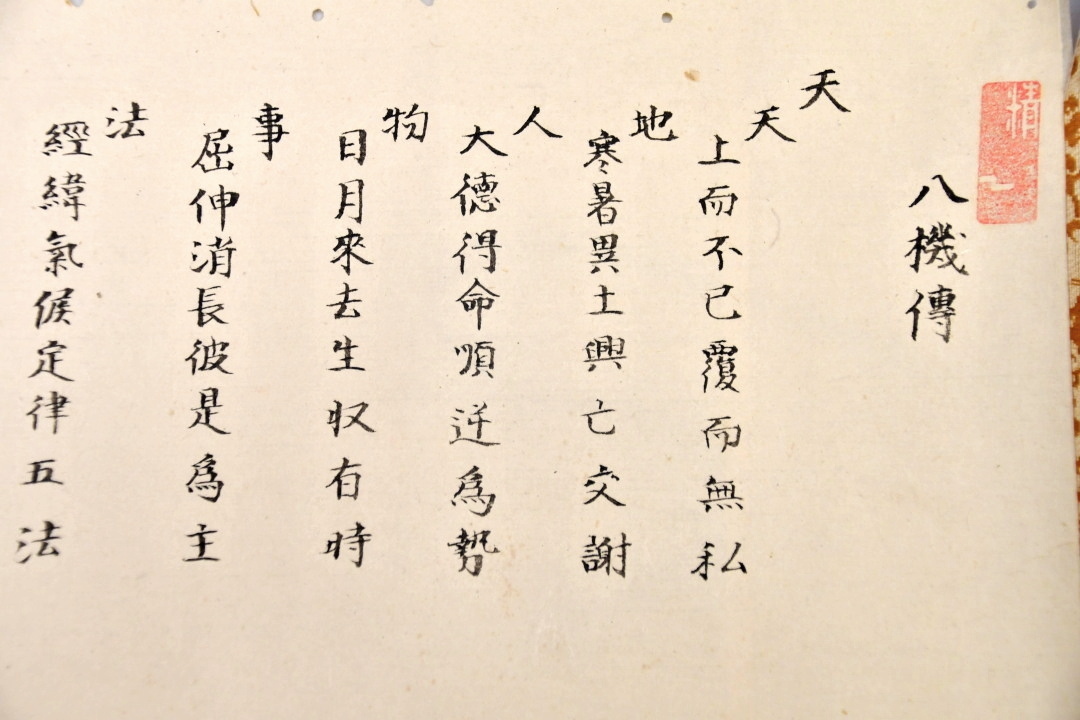 八機傳
天
天
上而不已覆而無私
地
寒暑異土興亡交謝
人
大德得命順逆為勢
物
日月來去生収有時
事
屈伸消長彼是為主
法
經緯氣候定律五法